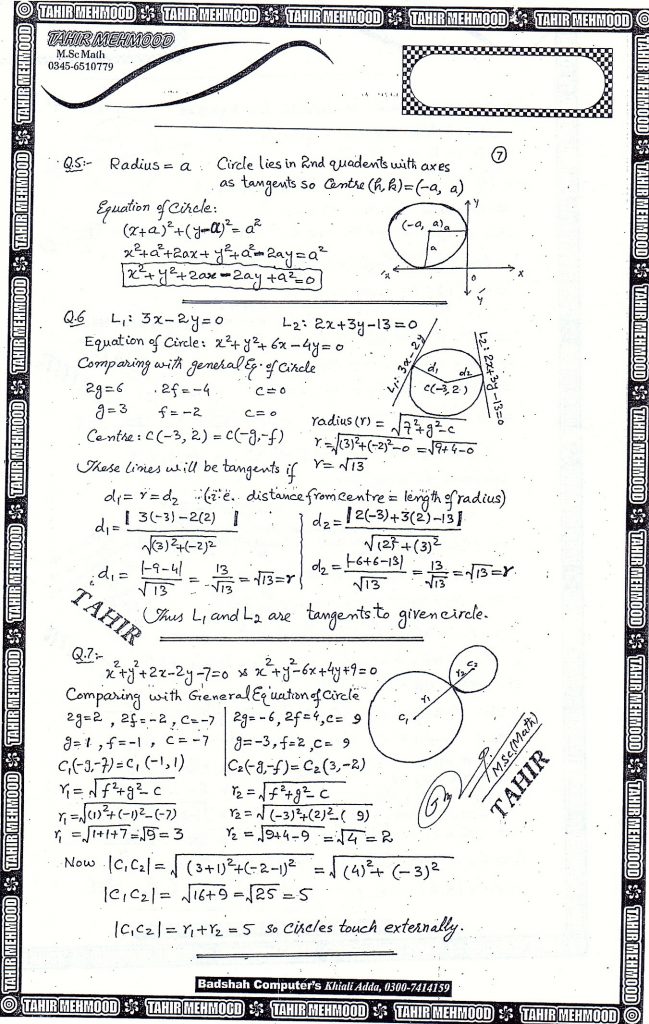 TAHIR MEHMOOD TAHIR MEHMOOD TAHIR MEHMOOD TAHIR MEHMOOD TAHIR MEHMOOD
TAHIR MEHMOOD
M.Sc Math
0345-6510779
7
Q.5:- Radius = a . Circle lies in 2nd quadents with axes
as tangents so Centre (h, k) = (-a, a)
Equation of Circle:
(x+a)²+(y-a)² = a²
x²+a²+2ax+y²+a²-2ay=a²
x²+y²+2ax-2ay+a²=0
(-a, a) a
a
y
x' o x
y'
Q.6 L₁: 3x-2y=0 L₂: 2x+3y-13=0
Equation of Circle: x²+y²+6x-4y=0
Comparing with general Eq. of Circle
2g=6 . 2f=-4 c=0
g=3 f=-2 c=0
Centre: C(-3, 2) = C(-g,-f)
L₁: 3x-2y
d₁ d₂
C(-3, 2)
L₂: 2x+3y-13=0
radius (r) = √7²+g²-c
r=√(3)²+(-2)²-0 = √9+4-0
r= √13
These lines will be tangents if
d₁ = r = d₂ (i.e. distance from centre = length of radius)
d₁ = | 3(-3)-2(2) | / √(3)²+(-2)²
d₂ = | 2(-3)+3(2)-13 | / √(2)²+(3)²
d₁ = |-9-4| / √13 = 13/√13 = √13 = r
d₂ = |-6+6-13| / √13 = 13/√13 = √13 = r
TAHIR
Thus L₁ and L₂ are tangents to given circle.
Q.7:-
x²+y²+2x-2y-7=0 & x²+y²-6x+4y+9=0
Comparing with General Equation of Circle
2g=2 , 2f=-2 , C=-7 2g=-6, 2f=4, C= 9
g=1 , f=-1 , C=-7 g=-3, f=2, C= 9
C₁(-g,-f)=C₁(-1,1) C₂(-g,-f)=C₂(3,-2)
r₁ = √f²+g²-c r₂ = √f²+g²-c
r₁=√(1)²+(-1)²-(-7) r₂ = √(-3)²+(2)²-( 9)
r₁ = √1+1+7=√9=3 r₂ = √9+4-9 = √4 = 2
C₁ r₁ r₂ C₂
M.Sc.(Math)
TAHIR
Now |C₁C₂| = √(3+1)²+(-2-1)² = √(4)²+(-3)²
|C₁C₂| = √16+9 = √25 = 5
|C₁C₂| = r₁+r₂ = 5 so Circles touch externally.
Badshah Computer's Khiali Adda, 0300-7414159
TAHIR MEHMOOD TAHIR MEHMOOD TAHIR MEHMOOD TAHIR MEHMOOD TAHIR MEHMOOD